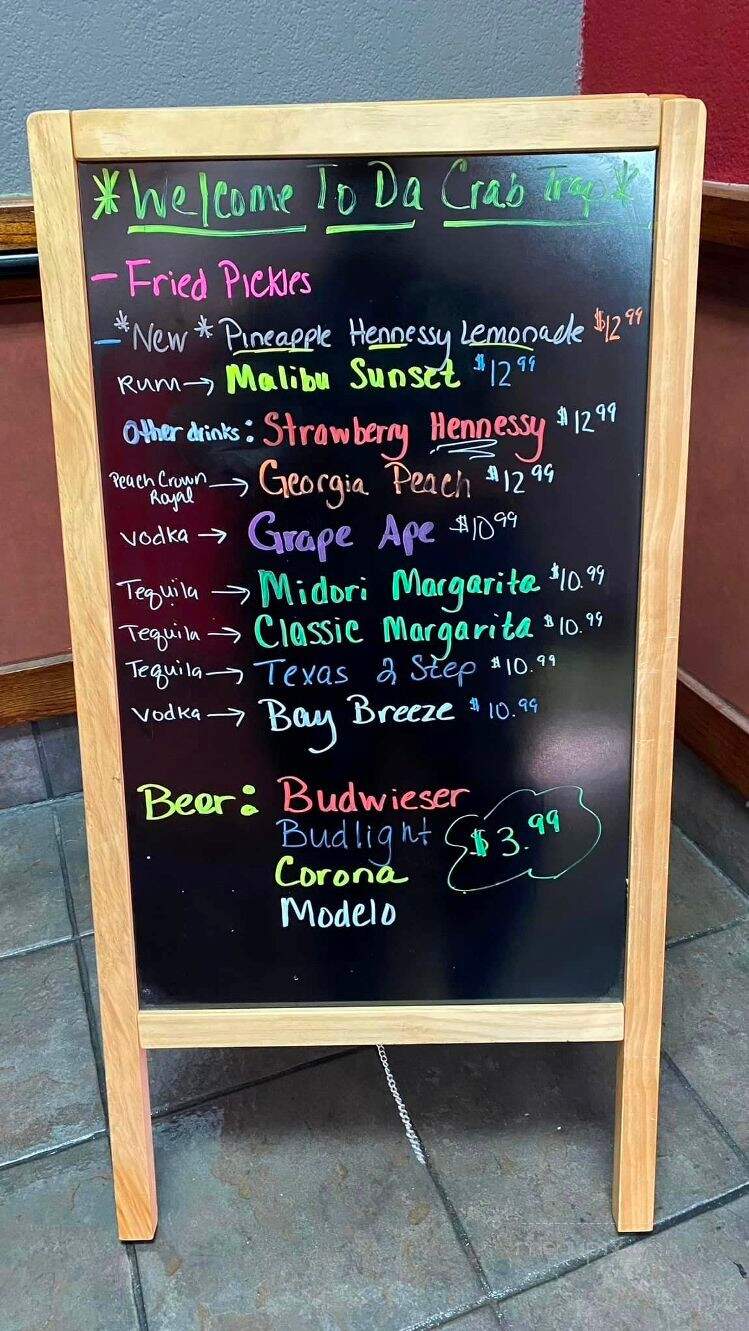 *Welcome To Da Crab Trap*
- Fried Pickles
- *New* Pineapple Hennessy Lemonade $12 99
Rum → Malibu Sunset $12 99
Other drinks: Strawberry Hennessy $12 99
Peach Crown Royal → Georgia Peach $12 99
Vodka → Grape Ape $10 99
Tequila → Midori Margarita $10.99
Tequila → Classic Margarita $10.99
Tequila → Texas 2 Step $10.99
Vodka → Bay Breeze $10.99
Beer: Budwieser
Budlight $3.99
Corona
Modelo